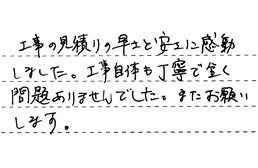 工事の見積りの早さと安さに感動
しました。工事自体も丁寧で全く
問題ありませんでした。またお願い
します。